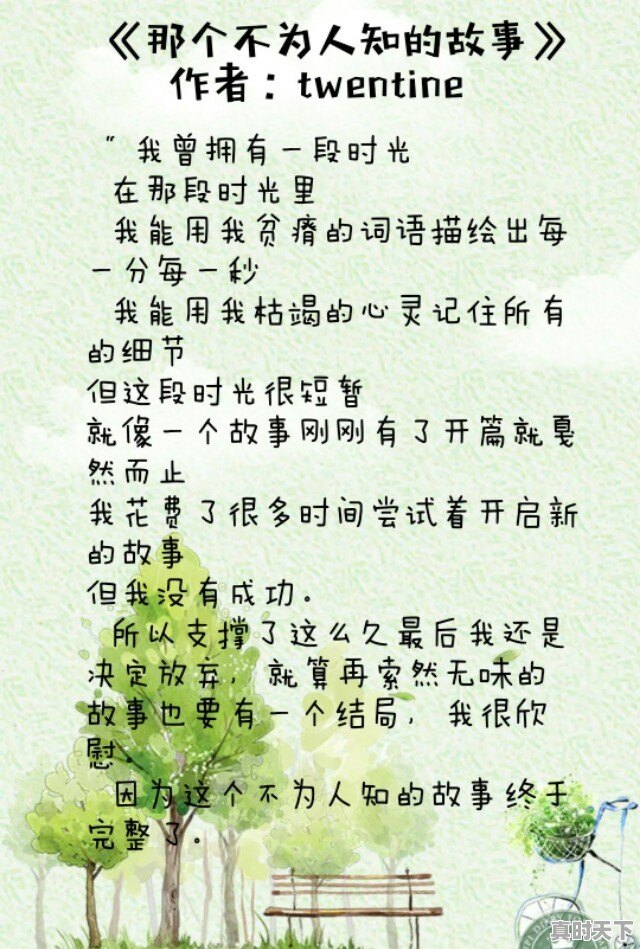 《那个不为人知的故事》
作者：twentine
“我曾拥有一段时光
在那段时光里
我能用我贫瘠的词语描绘出每
一分每一秒
我能用我枯竭的心灵记住所有
的细节
但这段时光很短暂
就像一个故事刚刚有了开篇就戛
然而止
我花费了很多时间尝试着开启新
的故事
但我没有成功。
所以支撑了这么久最后我还是
决定放弃，就算再索然无味的
故事也要有一个结局，我很欣
慰。
因为这个不为人知的故事终于
完整了。
真时天下